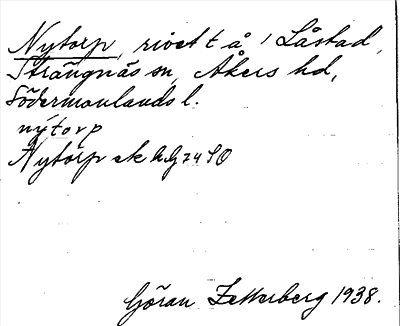 Nytorp, rivet t å / Låstad,
Strängnäs sn, Åkers hd,
Södermanlands l.
nýtorp
Nytorp ek h.G 74 SO
Göran Zetterberg 1938.